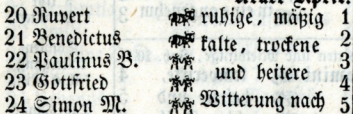 20 Ruvert ruhige, mäßig 1
21 Benedictus kalte, trockene 2
22 Paulinus B. und heitere 3
23 Gottfried 4
24 Simon M. Witterung nach 5